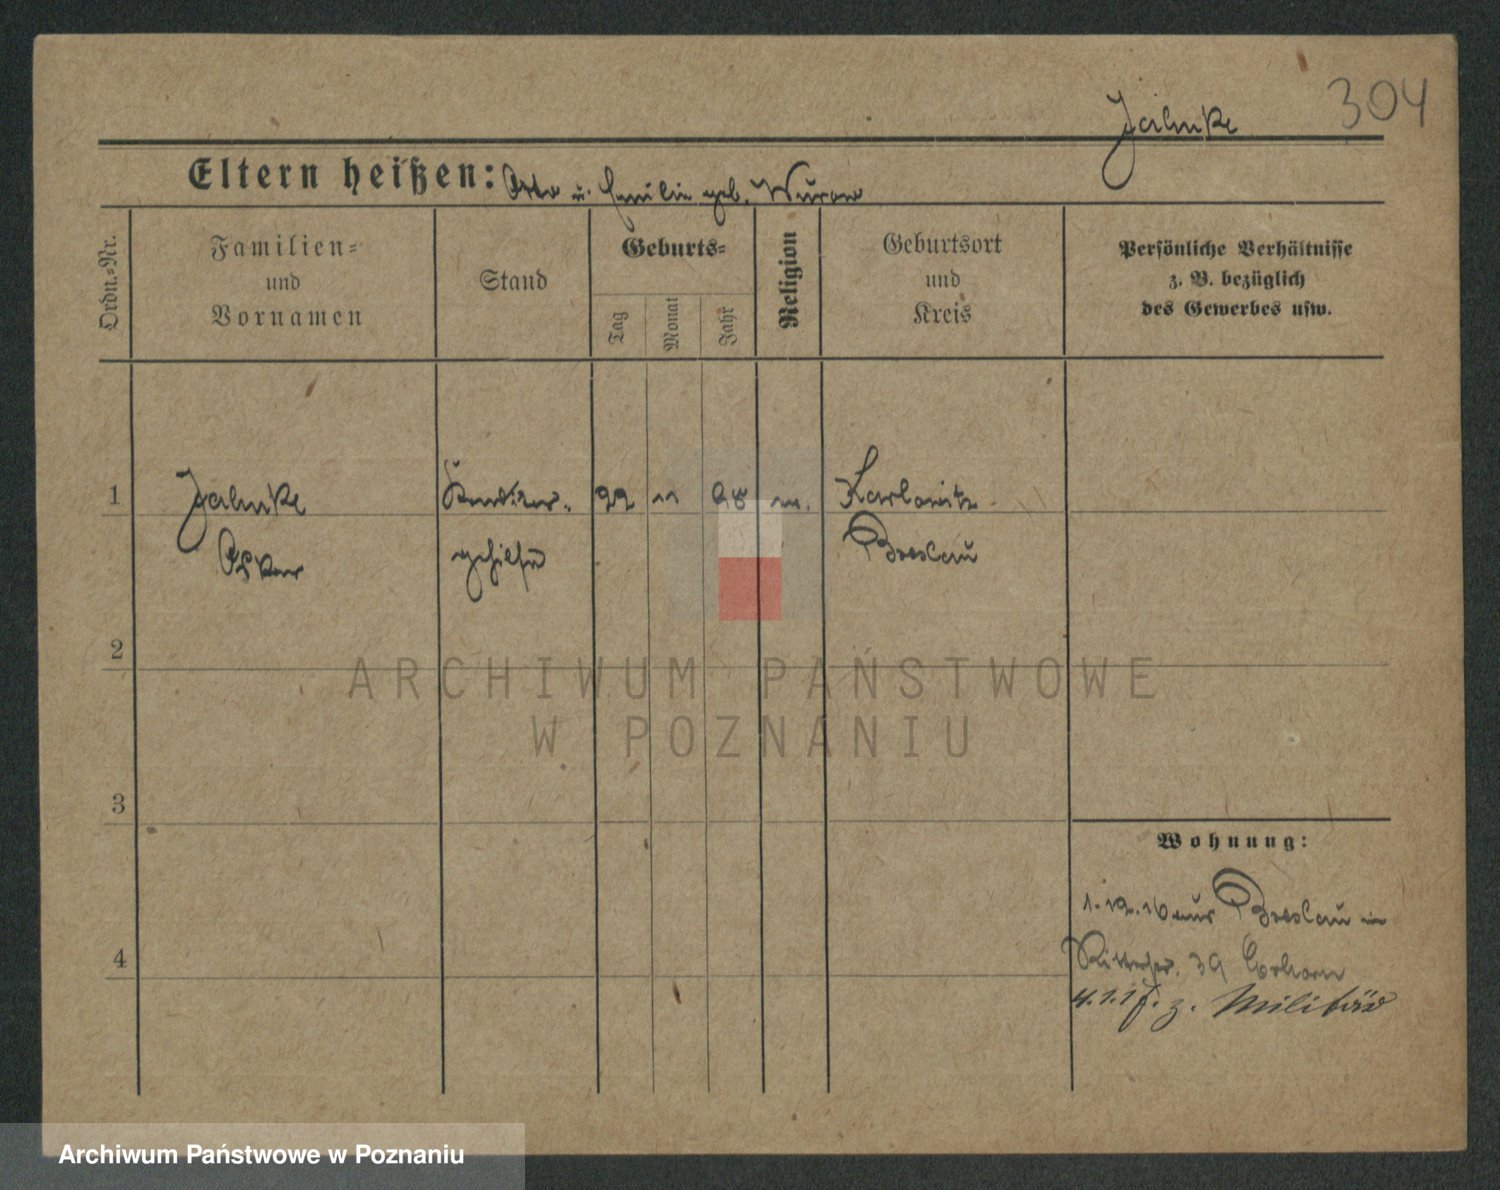 304
Jahnke
Eltern heißen: Otto u. Emilie geb.
Ordn.=Nr.
Familien=
und
Vornamen
Stand
Geburts=
Tag
Monat
Jahr
Religion
Geburtsort
und
Kreis
Persönliche Verhältnisse
z. B. bezüglich
des Gewerbes usw.
1
Jahnke
Oskar
Konditor-
gehilfe
22
11
98
Karlowitz
Breslau
2
ARCHIWUM PAŃSTWOWE
W POZNANIU
3
Wohnung:
1.12.16 aus Breslau in
4
39
4.1.17. z. Militär
Archiwum Państwowe w Poznaniu